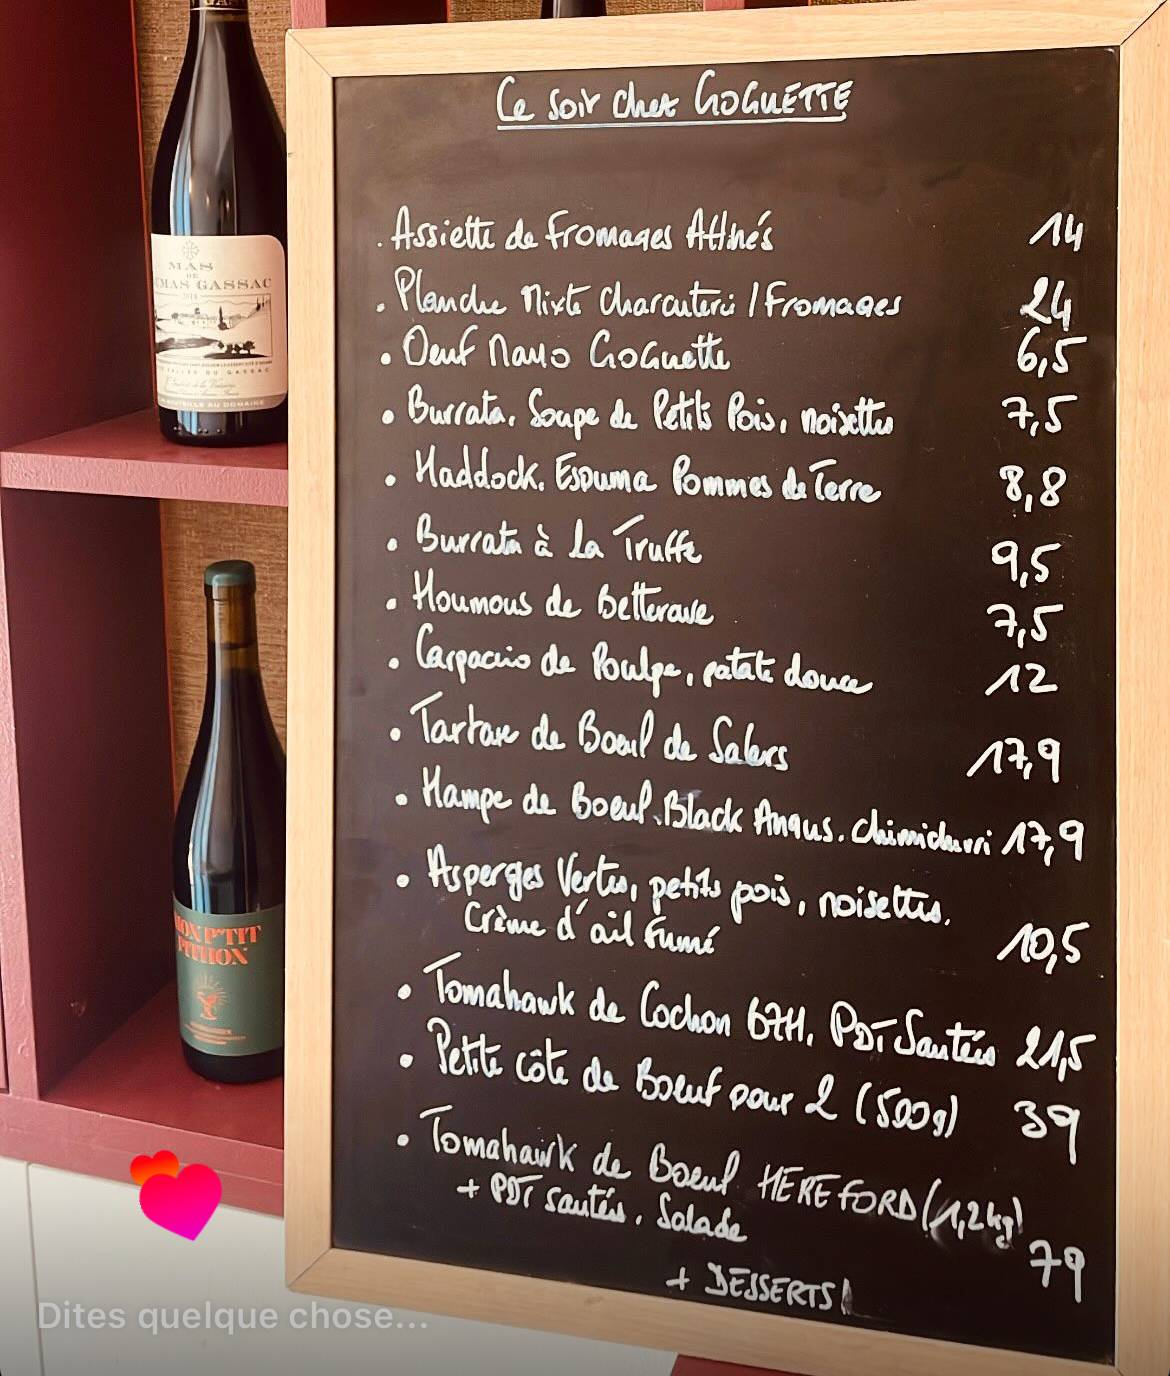 Ce soir chez GOGUETTE
. Assiette de Fromages Affinés 14
. Planche Mixte Charcuterie / Fromages 24
. Oeuf Mayo GoGuette 6,5
. Burrata, Soupe de Petits Pois, noisettes 7,5
. Haddock, Espuma Pommes de Terre 8,8
. Burrata à la Truffe 9,5
. Houmous de Betterave 7,5
. Carpaccio de Poulpe, patate douce 12
. Tartare de Boeuf de Salers 17,9
. Hampe de Boeuf Black Angus, chimichurri 17,9
. Asperges Vertes, petits pois, noisettes,
Crème d'ail Fumé 10,5
. Tomahawk de Cochon 67H, PDT Sautées 21,5
. Petite côte de Boeuf pour 2 (500g) 39
. Tomahawk de Boeuf HEREFORD (1,2kg)
+ PDT sautées, Salade 79
+ DESSERTS!
MAS
DE
UMAS GASSAC
MON P'TIT
PITHON
Dites quelque chose...